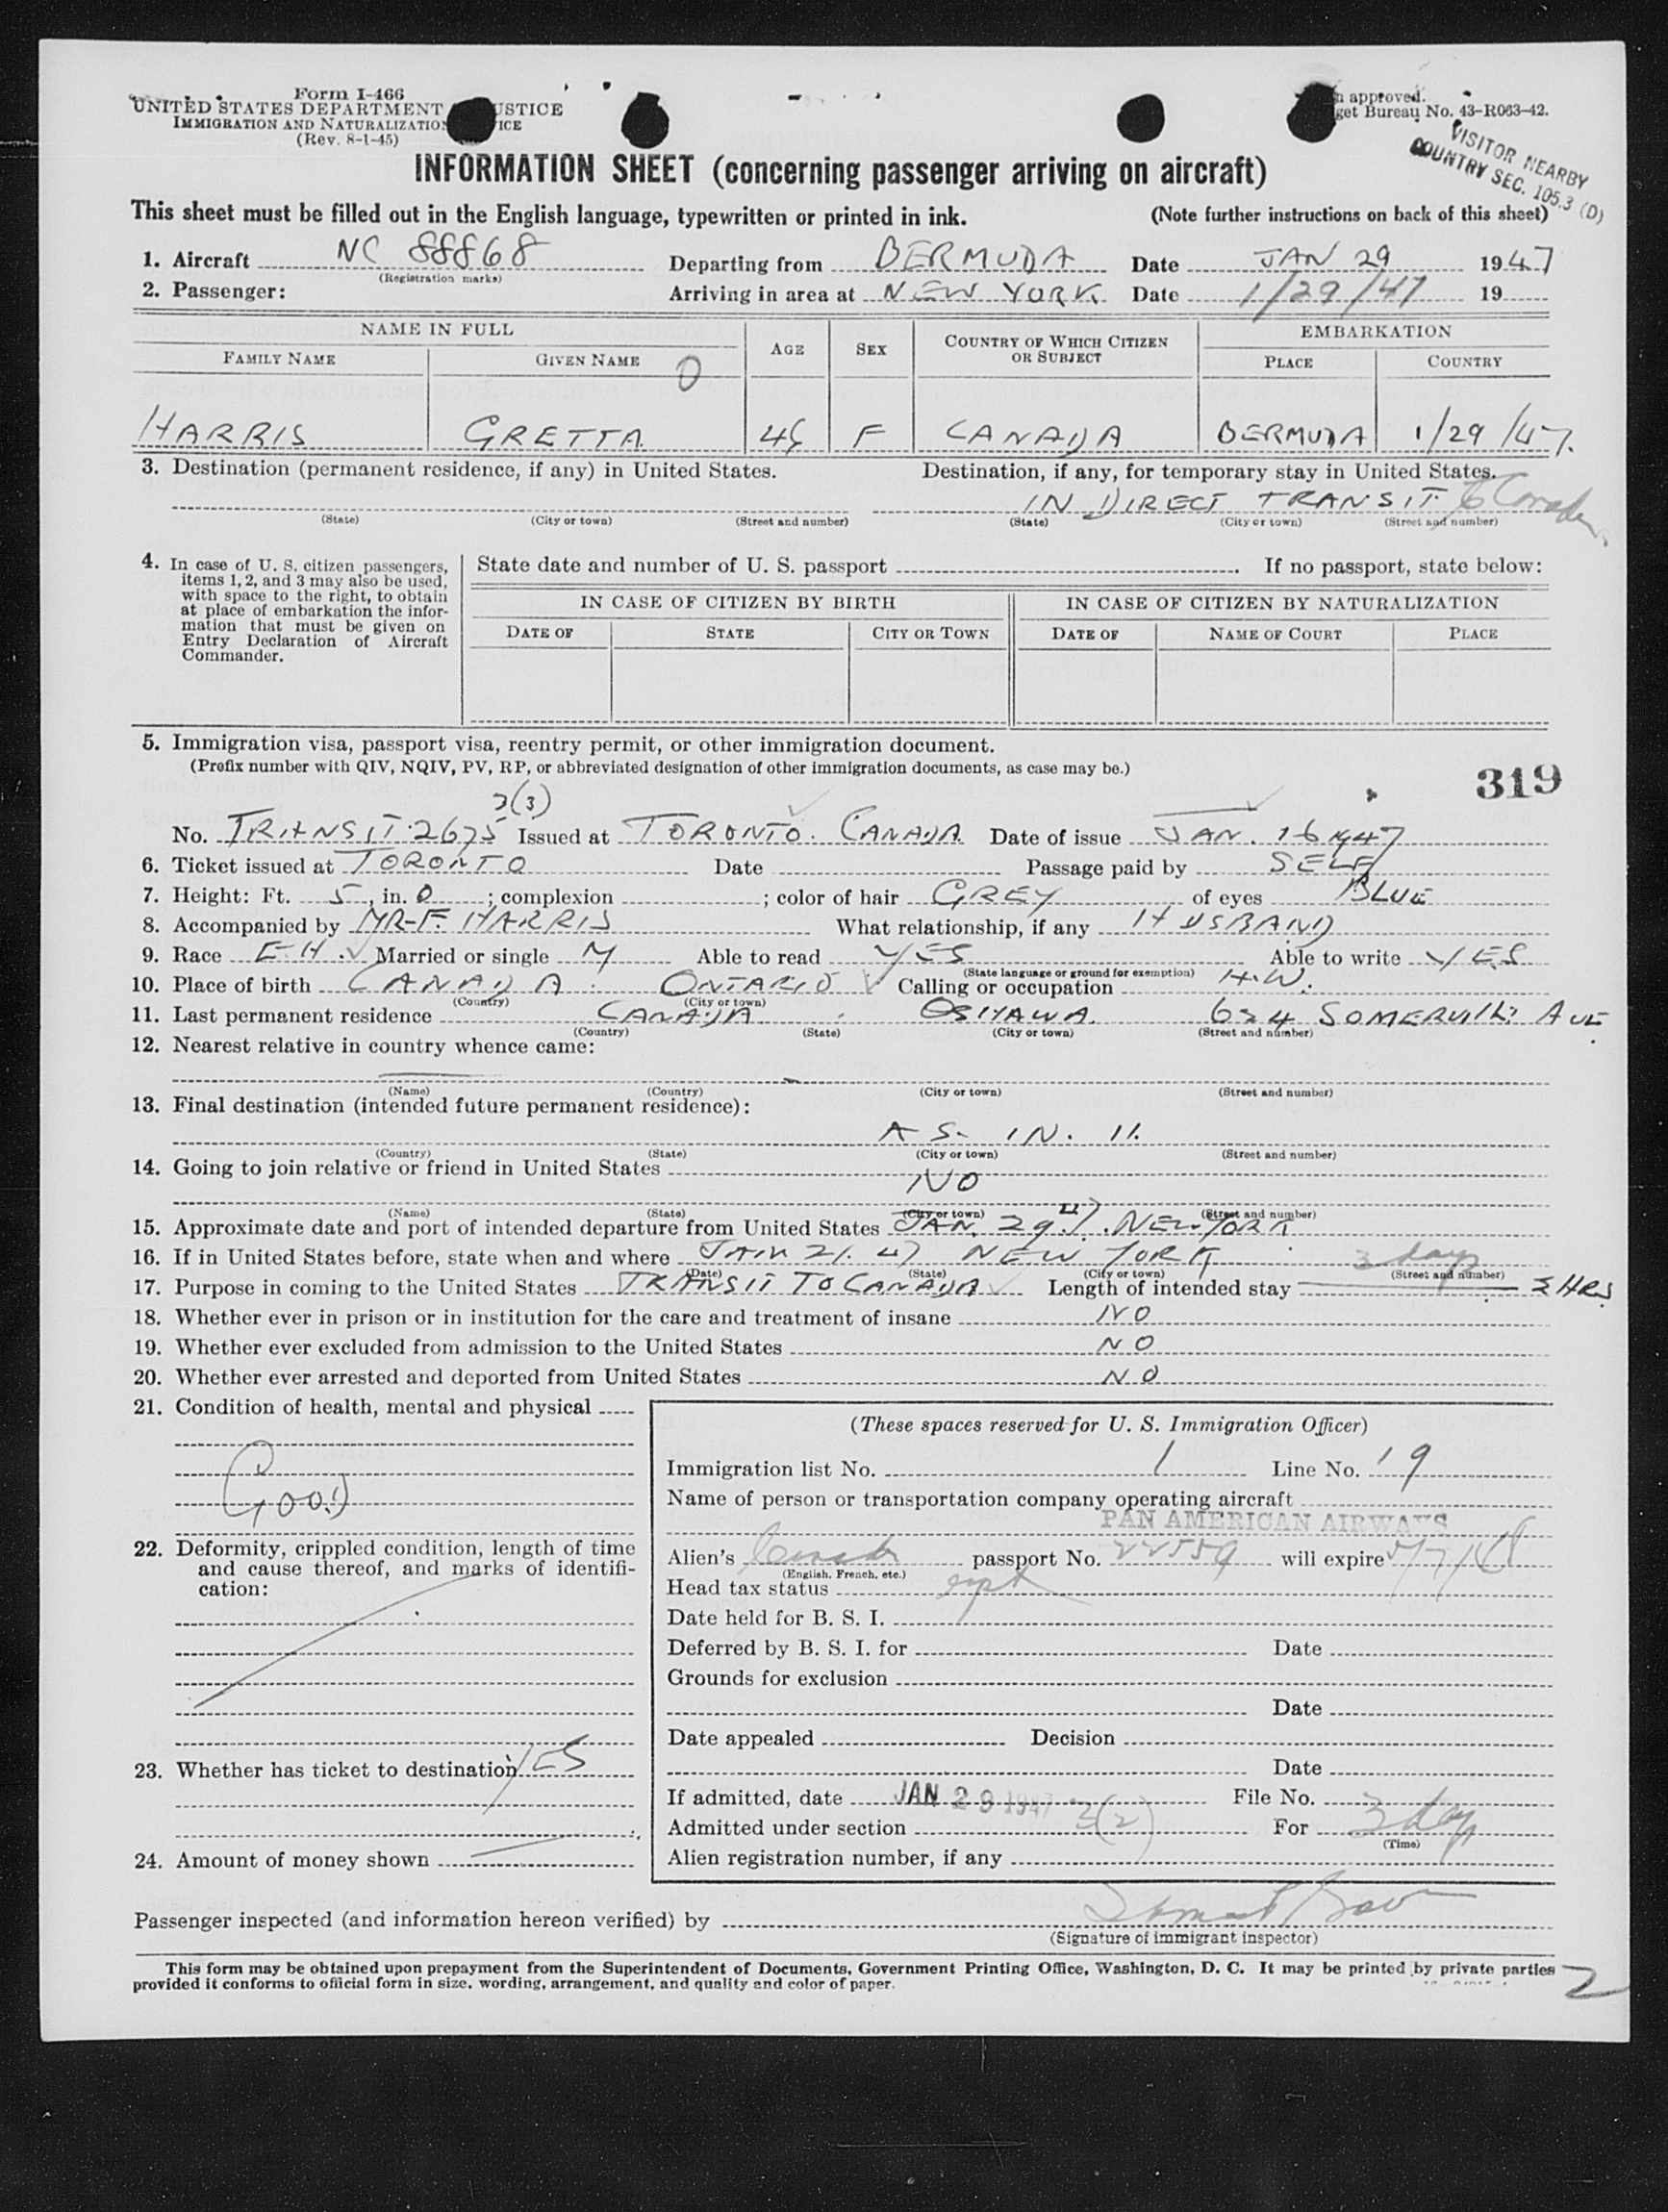 Form I-466
UNITED STATES DEPARTMENT JUSTICE
IMMIGRATION AND NATURALIZATION
(Rev. 8-1-45)
approved.
Bureau No. 43-R063-42.
VISITOR NEARBY
COUNTRY SEC. 105.3 (D)
INFORMATION SHEET (concerning passenger arriving on aircraft)
This sheet must be filled out in the English language, typewritten or printed in ink. (Note further instructions on back of this sheet)
1. Aircraft NC 88868 Departing from BERMUDA Date JAN 29 1947
(Registration marks)
2. Passenger: Arriving in area at NEW YORK Date 1/29/47 19
NAME IN FULL AGE SEX COUNTRY OF WHICH CITIZEN OR SUBJECT EMBARKATION
FAMILY NAME GIVEN NAME PLACE COUNTRY
HARRIS GRETTA F CANADA BERMUDA 1/29/47.
3. Destination (permanent residence, if any) in United States. Destination, if any, for temporary stay in United States.
IN DIRECT TRANSIT
(State) (City or town) (Street and number) (State) (City or town) (Street and number)
4. In case of U. S. citizen passengers, items 1, 2, and 3 may also be used, with space to the right, to obtain at place of embarkation the information that must be given on Entry Declaration of Aircraft Commander.
State date and number of U. S. passport . If no passport, state below:
IN CASE OF CITIZEN BY BIRTH IN CASE OF CITIZEN BY NATURALIZATION
DATE OF STATE CITY OR TOWN DATE OF NAME OF COURT PLACE
5. Immigration visa, passport visa, reentry permit, or other immigration document.
(Prefix number with QIV, NQIV, PV, RP, or abbreviated designation of other immigration documents, as case may be.)
319
3(3)
No. TRANSIT 2675 Issued at TORONTO. CANADA Date of issue JAN. 16 1947
6. Ticket issued at TORONTO Date Passage paid by SELF
7. Height: Ft. 5, in. 0; complexion ; color of hair GREY of eyes BLUE
8. Accompanied by MR-F. HARRIS What relationship, if any HUSBAND
9. Race Married or single M Able to read YES Able to write YES
(State language or ground for exemption)
10. Place of birth CANADA ONTARIO Calling or occupation H.W.
(Country) (City or town)
11. Last permanent residence CANADA OSHAWA 624 SOMERVILLE AVE
(Country) (State) (City or town) (Street and number)
12. Nearest relative in country whence came:
(Name) (Country) (City or town) (Street and number)
13. Final destination (intended future permanent residence):
AS. IN. 11.
(Country) (State) (City or town) (Street and number)
14. Going to join relative or friend in United States
NO
(Name) (State) (City or town) (Street and number)
15. Approximate date and port of intended departure from United States JAN. 29. 47. NEW YORK
16. If in United States before, state when and where JAN 21. 47 NEW YORK
(Date) (State) (City or town) (Street and number)
3 days
17. Purpose in coming to the United States TRANSIT TO CANADA Length of intended stay HRS
18. Whether ever in prison or in institution for the care and treatment of insane NO
19. Whether ever excluded from admission to the United States NO
20. Whether ever arrested and deported from United States NO
21. Condition of health, mental and physical
GOOD
22. Deformity, crippled condition, length of time and cause thereof, and marks of identification:
23. Whether has ticket to destination YES
24. Amount of money shown
(These spaces reserved for U. S. Immigration Officer)
Immigration list No. 1 Line No. 19
Name of person or transportation company operating aircraft
PAN AMERICAN AIRWAYS
Alien's passport No. 22559 will expire
(English, French, etc.)
Head tax status
Date held for B. S. I.
Deferred by B. S. I. for Date
Grounds for exclusion
Date
Date appealed Decision
Date
If admitted, date JAN 29 1947 File No.
Admitted under section 3(2) For 3 day
(Time)
Alien registration number, if any
Passenger inspected (and information hereon verified) by
(Signature of immigrant inspector)
This form may be obtained upon prepayment from the Superintendent of Documents, Government Printing Office, Washington, D. C. It may be printed by private parties
provided it conforms to official form in size, wording, arrangement, and quality and color of paper.
2